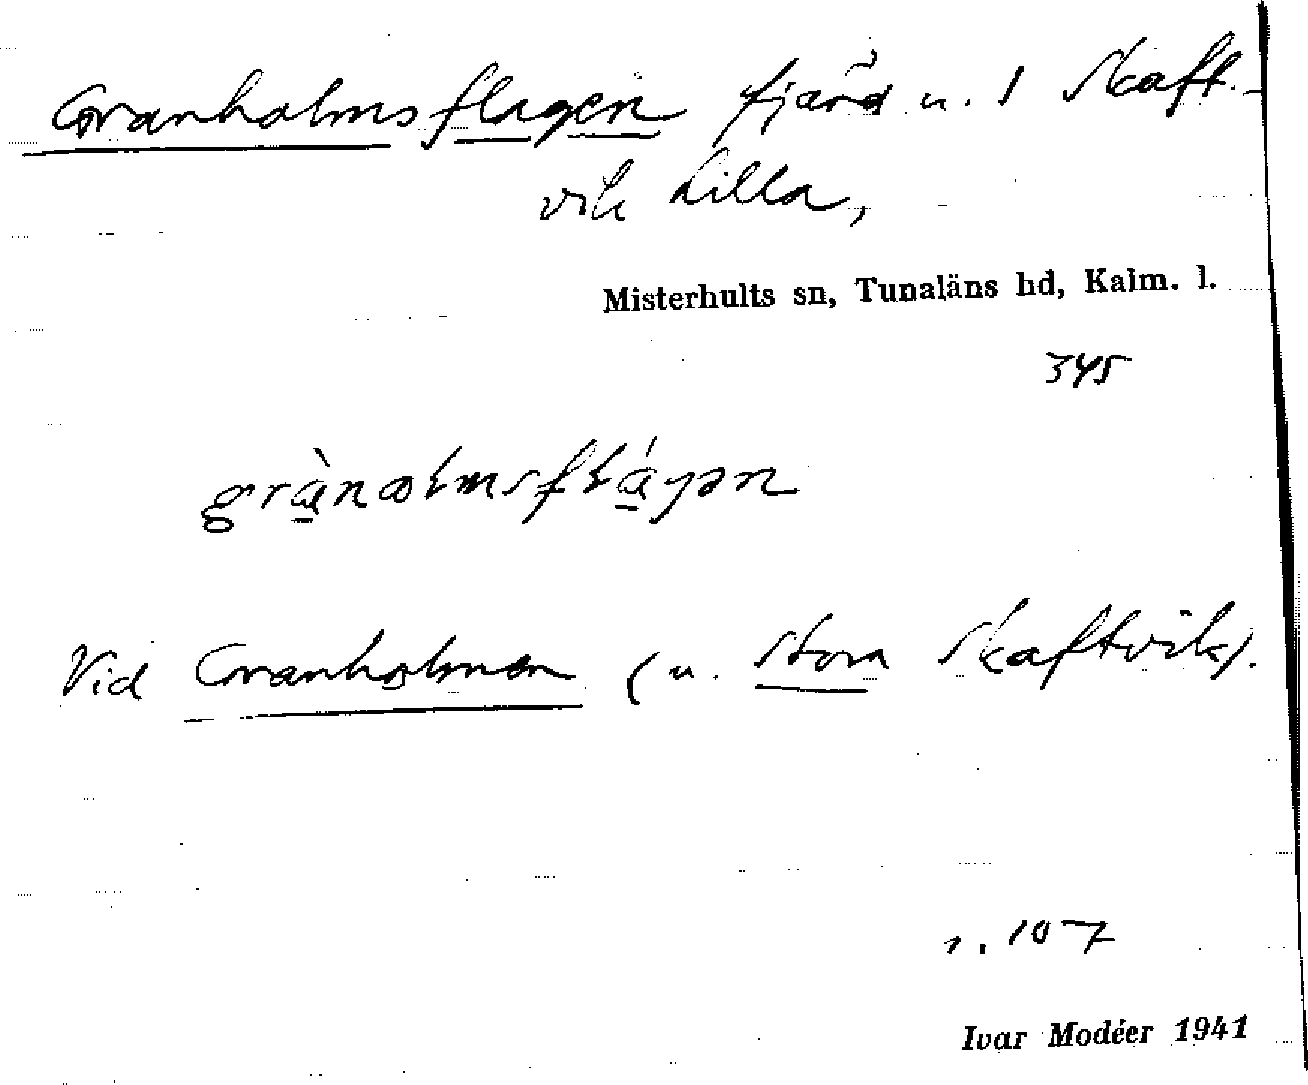 Granholmsflagen fjärd u. 1 Skaft-
vik Lilla,
Misterhults sn, Tunaläns hd, Kalm. l.
345
grànɷlmsflágən
Vid Granholmen (u. Stora Skaftvik).
s. 107
Ivar Modéer 1941